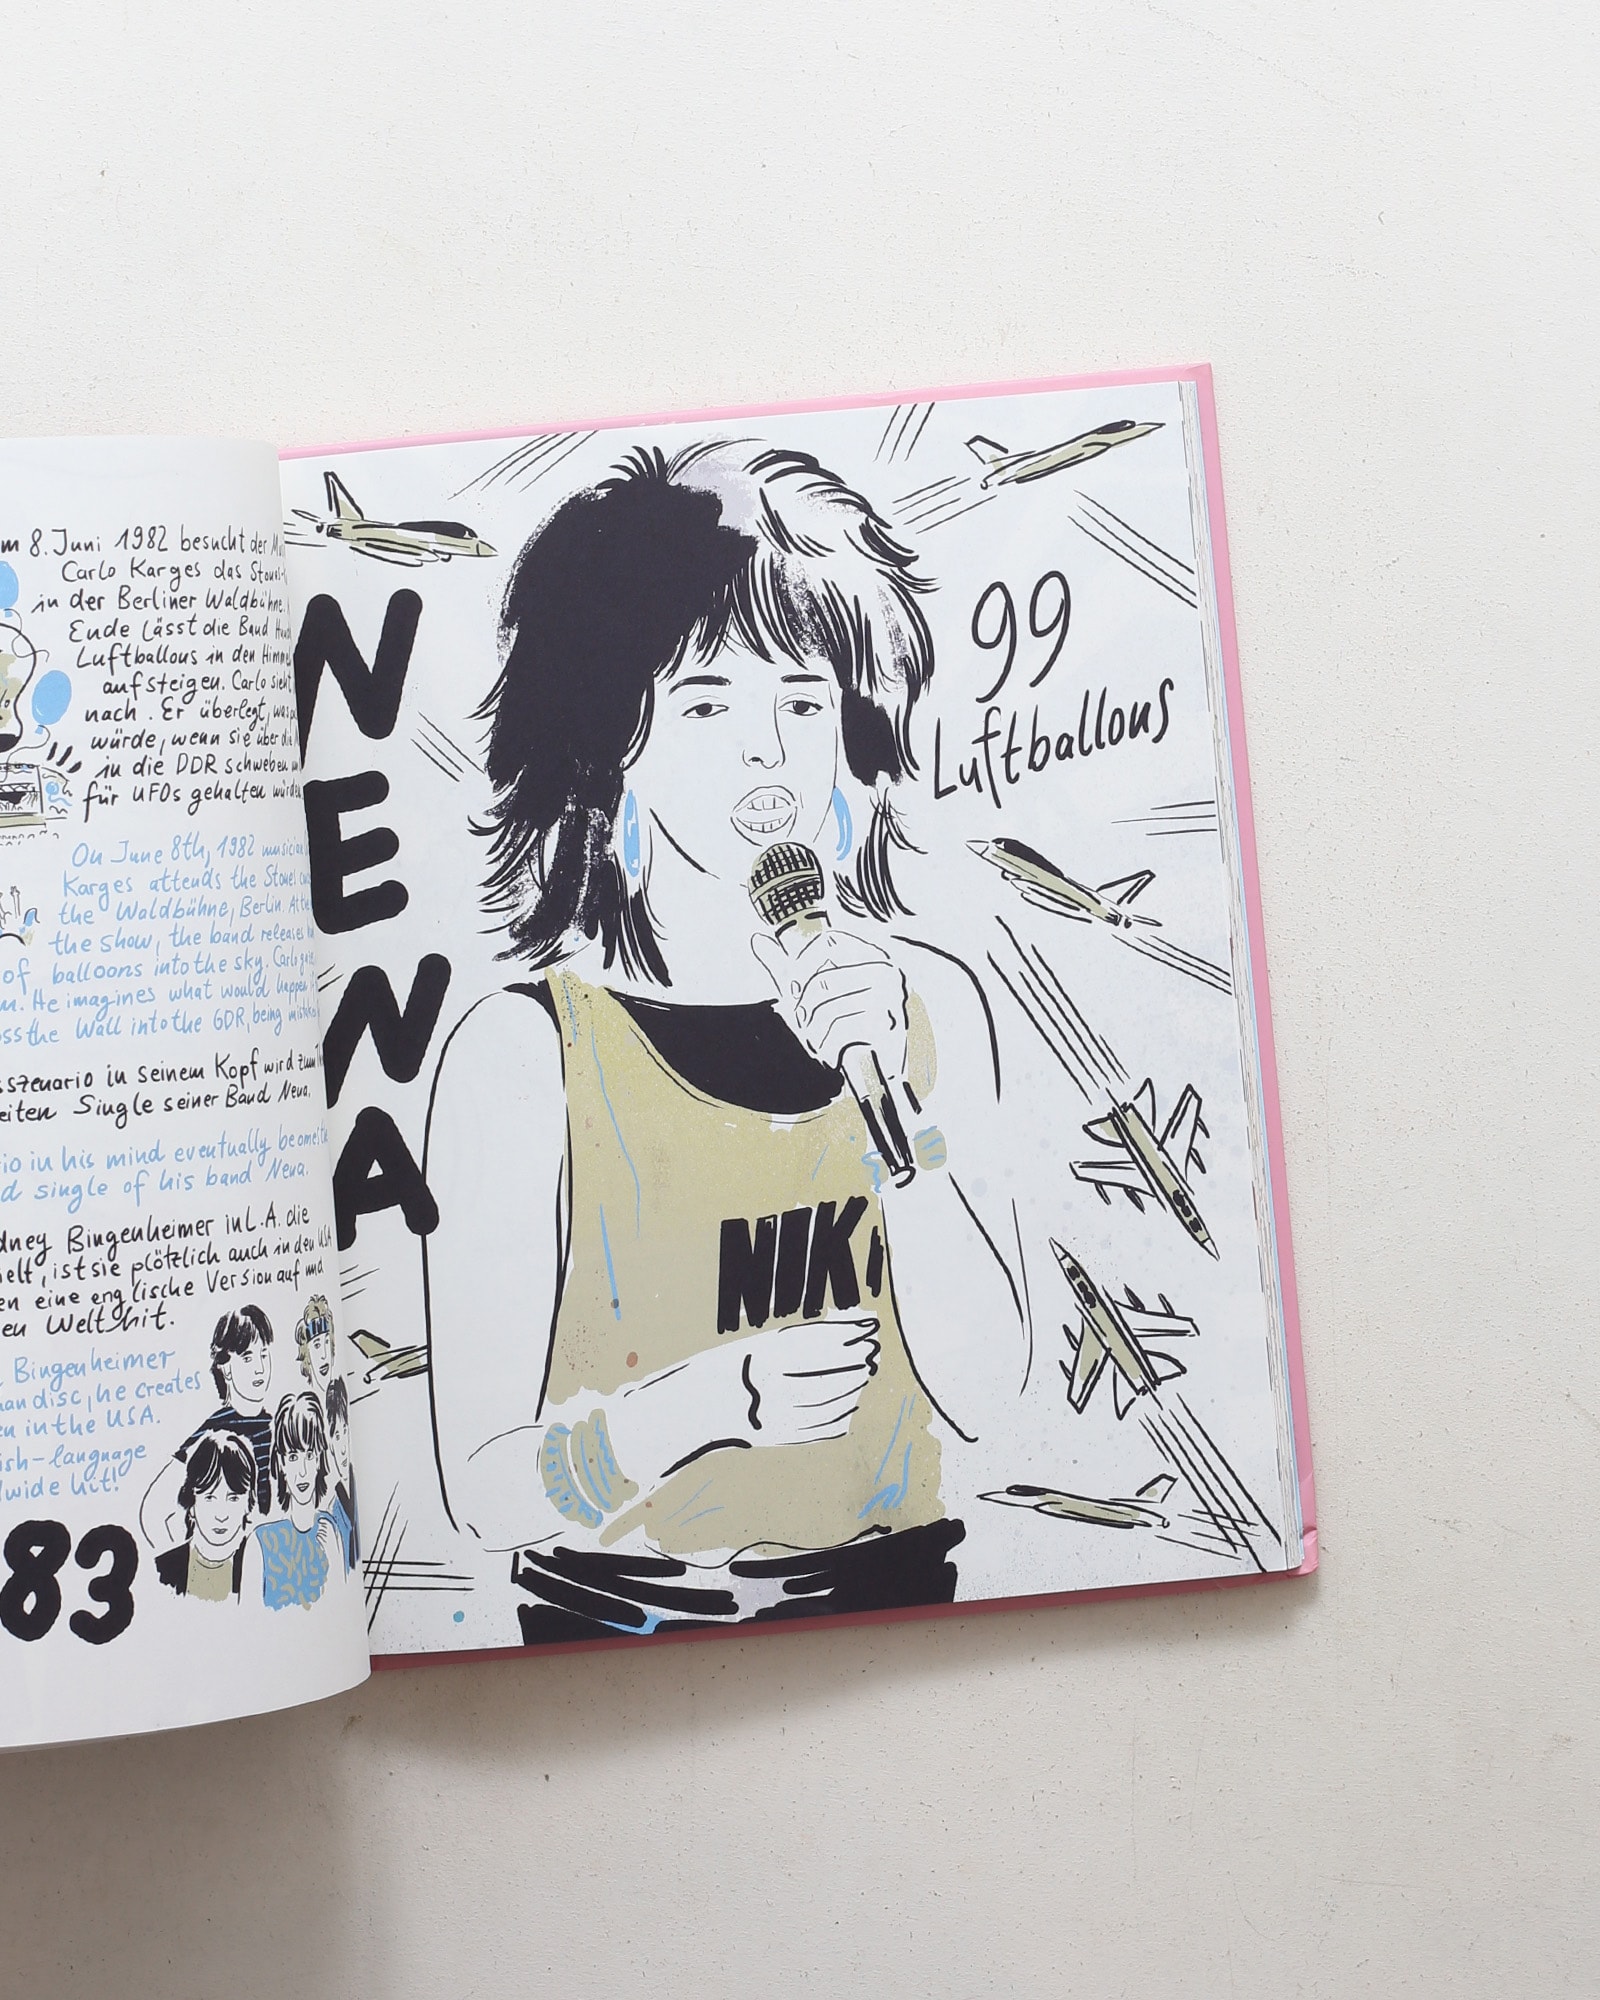 m 8. Juni 1982 besucht der
Carlo Karges das Stones-
in der Berliner Waldbühne.
Ende lässt die Band
Luftballons in den
aufsteigen. Carlo sieht
nach. Er überlegt, was
würde, wenn sie über die
in die DDR schweben
für UFOs gehalten würden
On June 8th, 1982 musician
Karges attends the Stones
the Waldbühne, Berlin. At the
the show, the band releases
of balloons into the sky. Carlo
m. He imagines what would happen
oss the Wall into the GDR, being
sszenario in seinem Kopf wird zum
eiten Single seiner Band Nena.
rio in his mind eventually beomes
d single of his band Nena.
dney Bingenheimer in L.A. die
ielt, ist sie plötzlich auch in den USA
en eine englische Version auf und
en Welthit.
Bingenheimer
man disc, he creates
en in the USA.
ish-language
dwide hit!
83
NENA
99
Luftballons
NIK